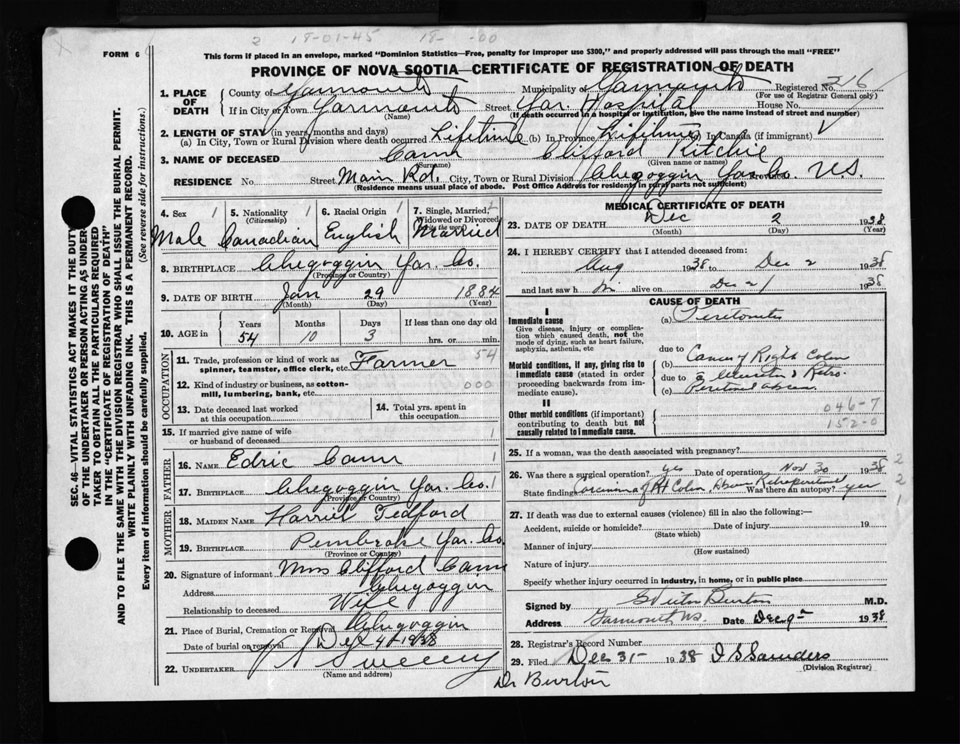 2 18-01-45 18- -00
FORM 6
This form if placed in an envelope, marked "Dominion Statistics—Free, penalty for improper use $300," and properly addressed will pass through the mail "FREE"
PROVINCE OF NOVA SCOTIA—CERTIFICATE OF REGISTRATION OF DEATH
SEC. 46—VITAL STATISTICS ACT MAKES IT THE DUTY
OF THE UNDERTAKER OR PERSON ACTING AS UNDER-
TAKER TO OBTAIN ALL THE PARTICULARS REQUIRED
IN THE "CERTIFICATE OF REGISTRATION OF DEATH"
AND TO FILE THE SAME WITH THE DIVISION REGISTRAR WHO SHALL ISSUE THE BURIAL PERMIT.
WRITE PLAINLY WITH UNFADING INK. THIS IS A PERMANENT RECORD.
Every item of information should be carefully supplied. (See reverse side for instructions.)
1. PLACE OF DEATH
County of Yarmouth Municipality of Yarmouth Registered No. 216
(For use of Registrar General only)
If in City or Town Yarmouth Street Yar. Hospital House No.
(Name) (If death occurred in a hospital or institution, give the name instead of street and number)
2. LENGTH OF STAY (in years, months and days)
(a) In City, Town or Rural Division where death occurred Lifetime (b) In Province Lifetime (c) In Canada (if immigrant)
3. NAME OF DECEASED Cann Clifford Ritchie
(Surname) (Given name or names)
RESIDENCE No. Street Main Rd. City, Town or Rural Division Chegoggin Yar. Co. Province N.S.
(Residence means usual place of abode. Post Office Address for residents in rural parts not sufficient)
4. Sex 1 5. Nationality 1 6. Racial Origin 1 7. Single, Married, Widowed or Divorced
(Citizenship)
Male Canadian English Married
8. BIRTHPLACE Chegoggin Yar. Co.
(Province or Country)
9. DATE OF BIRTH Jan 29 1884
(Month) (Day) (Year)
10. AGE in Years Months Days If less than one day old
54 10 3 hrs. or min.
OCCUPATION
11. Trade, profession or kind of work as
spinner, teamster, office clerk, etc. Farmer 54
12. Kind of industry or business, as cotton-
mill, lumbering, bank, etc. 000
13. Date deceased last worked
at this occupation
14. Total yrs. spent in
this occupation
15. If married give name of wife
or husband of deceased 1
FATHER
16. NAME Edric Cann 1
17. BIRTHPLACE Chegoggin Yar. Co. 1
(Province or Country)
MOTHER
18. MAIDEN NAME Harriet Tedford
19. BIRTHPLACE Pembroke Yar. Co
(Province or Country)
20. Signature of informant Mrs Clifford Cann
Address Chegoggin
Relationship to deceased Wife
21. Place of Burial, Cremation or Removal Chegoggin
Date of burial or removal Dec 4 1938
22. UNDERTAKER Sweeny
(Name and address)
MEDICAL CERTIFICATE OF DEATH
23. DATE OF DEATH Dec 2 1938
(Month) (Day) (Year)
24. I HEREBY CERTIFY that I attended deceased from:
Aug 1938 to Dec 2 1938
and last saw h im alive on Dec 2 1938
CAUSE OF DEATH
I
Immediate cause (a) Peritonitis
Give disease, injury or complica-
tion which caused death, not the
mode of dying, such as heart failure,
asphyxia, asthenia, etc
due to
Morbid conditions, if any, giving rise to
immediate cause (stated in order
proceeding backwards from im-
mediate cause).
(b) Cancer Right Colon
due to
(c) Ulceration & Retro-
Peritoneal abscess
II
Other morbid conditions (if important)
contributing to death but not
causally related to immediate cause.
046-7
152-0
25. If a woman, was the death associated with pregnancy?
26. Was there a surgical operation? yes Date of operation Nov 30 1938 2
State findings Carcinoma of Rt Colon, Abscess Retroperitoneal Was there an autopsy? yes 2
1
27. If death was due to external causes (violence) fill in also the following:—
Accident, suicide or homicide? Date of injury 19
(State which)
Manner of injury
(How sustained)
Nature of injury
Specify whether injury occurred in industry, in home, or in public place
Signed by G Victor Burton M.D.
Address Yarmouth N.S. Date Dec 9th 1938
28. Registrar's Record Number
29. Filed Dec 31 1938 I S Saunders
(Division Registrar)
Dr Burton